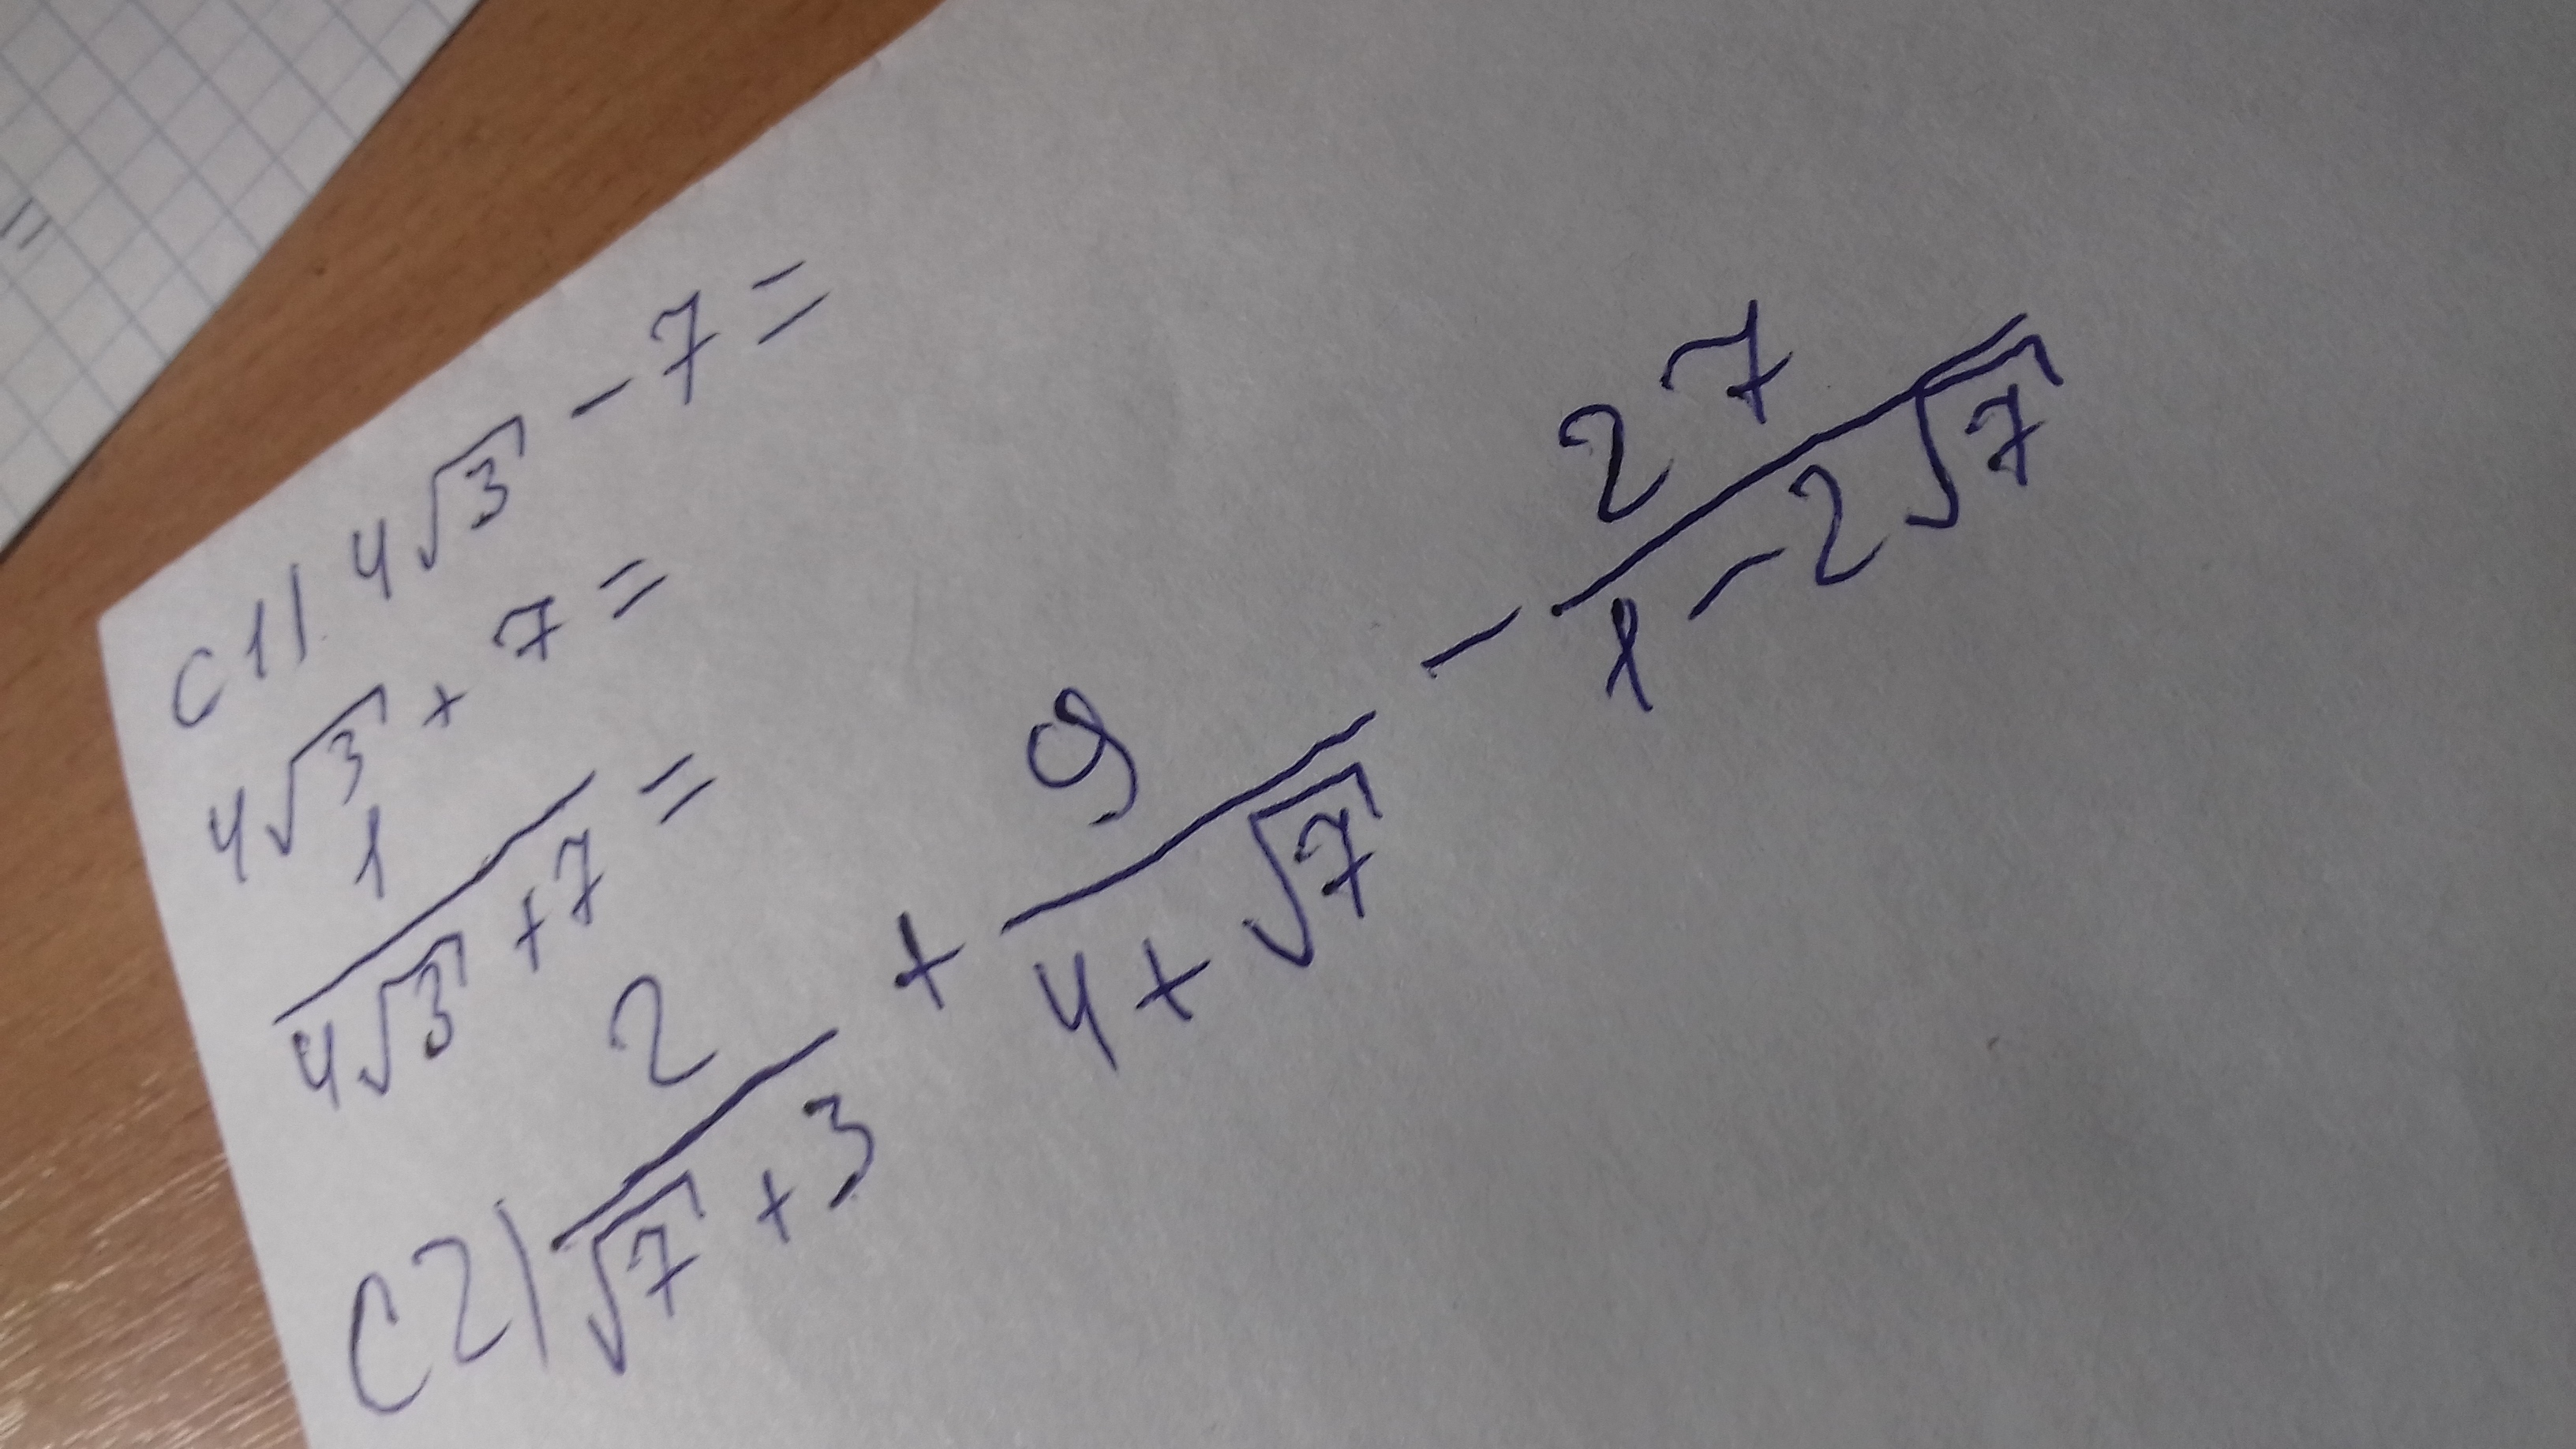 C1) 4√3 - 7 =
4√3 + 7 =
1
4√3 + 7 =
C2) 2/(√7 + 3) + 9/(4 + √7) - 27/(1 - 2√7)